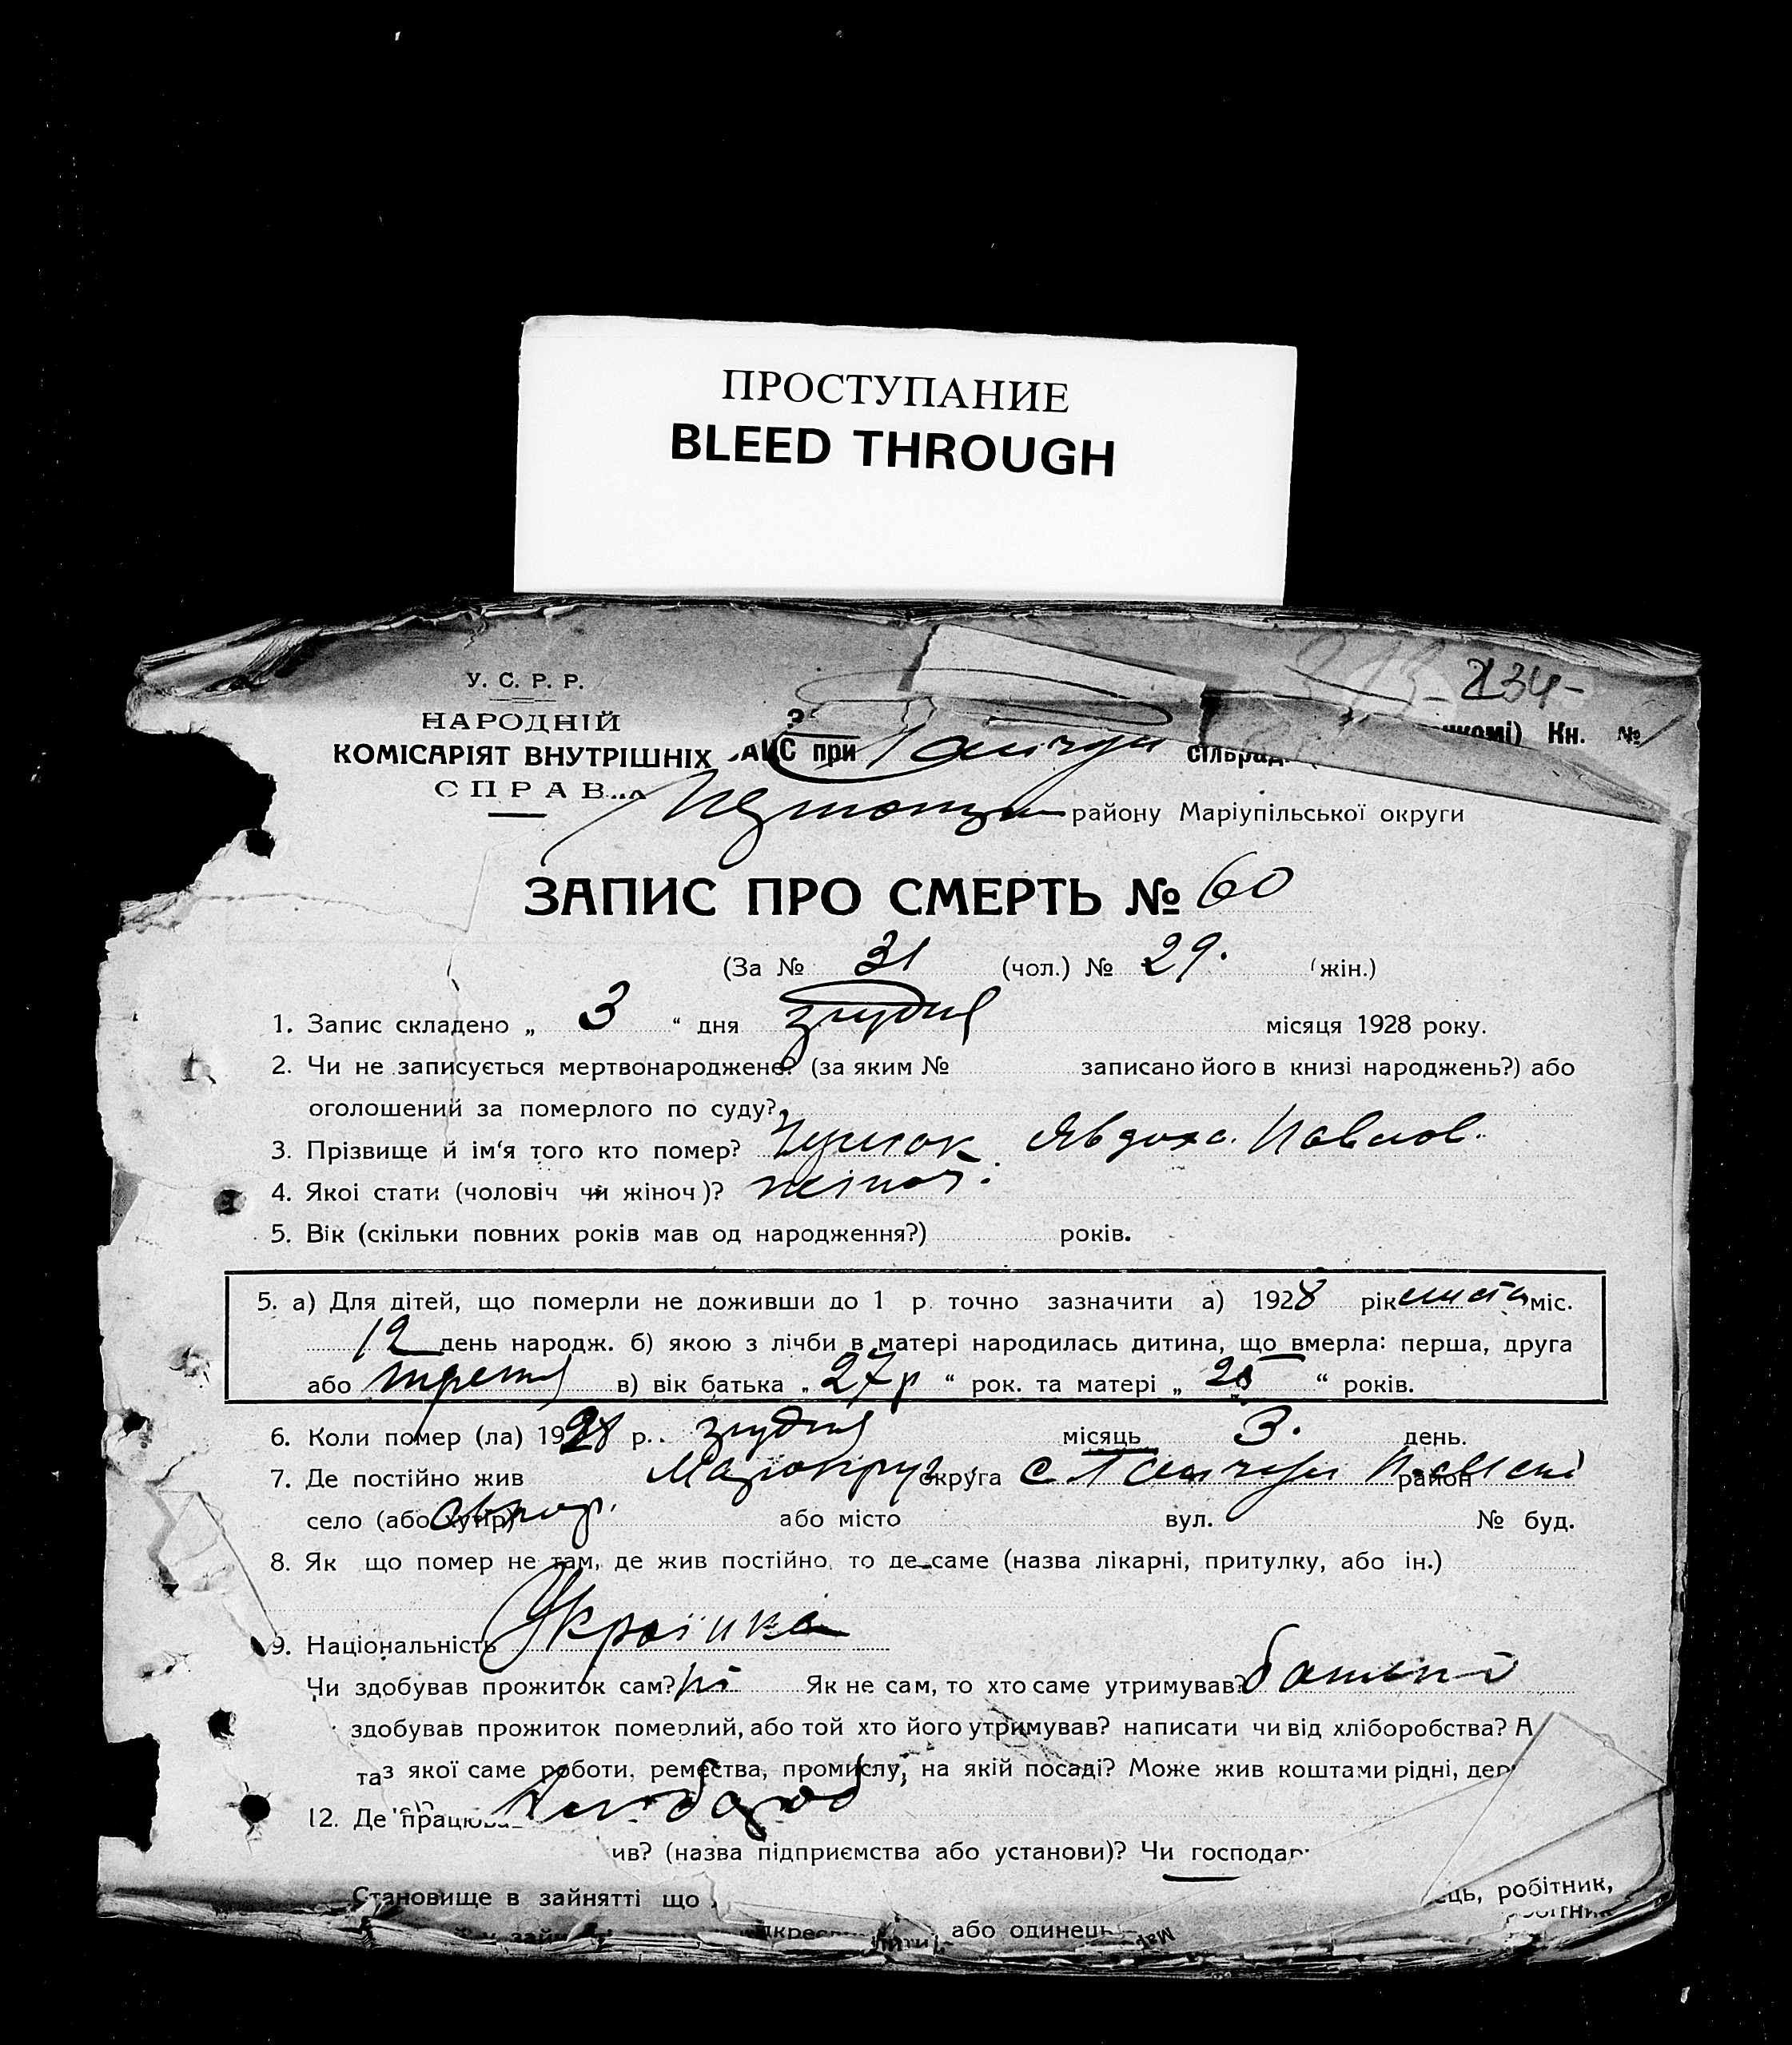 ПРОСТУПАНИЕ
BLEED THROUGH
234-
У. С. Р. Р.
НАРОДНІЙ
КОМІСАРІЯТ ВНУТРІШНІХ
СПРАВ
АИС при сільрад Кн. №
району Маріупільської округи
ЗАПИС ПРО СМЕРТЬ № 60
(За № 31 (чол.) № 29. (жін.)
1. Запис складено „ 3 “ дня грудня місяця 1928 року.
2. Чи не записується мертвонароджене? (за яким № записано його в книзі народжень?) або
оголошений за померлого по суду?
3. Прізвище й ім‘я того кто помер? Явдоха Павлов.
4. Якої стати (чоловіч чи жіноч)? жіноч.
5. Вік (скільки повних років мав од народження?) років.
5. а) Для дітей, що померли не доживши до 1 р. точно зазначити а) 1928 рік міс.
12 день народж. б) якою з лічби в матері народилась дитина, що вмерла: перша, друга
або третя в) вік батька „ 27 р “ рок. та матері „ 25 “ років.
6. Коли помер (ла) 1928 р. грудня місяць 3. день.
7. Де постійно жив округа с район
село (або хутір) або місто вул. № буд.
8. Як що помер не там, де жив постійно, то де саме (назва лікарні, притулку, або ін.)
9. Національність Українка
Чи здобував прожиток сам? ні Як не сам, то хто саме утримував? батько
здобував прожиток померлий, або той хто його утримував? написати чи від хліборобства? А
та з якої саме роботи, ремества, промислу, на якій посаді? Може жив коштами рідні, дер
Хлібороб
12. Де працював
ив? (назва підприємства або установи)? Чи господар
Становище в зайнятті що ець, робітник,
або одинець